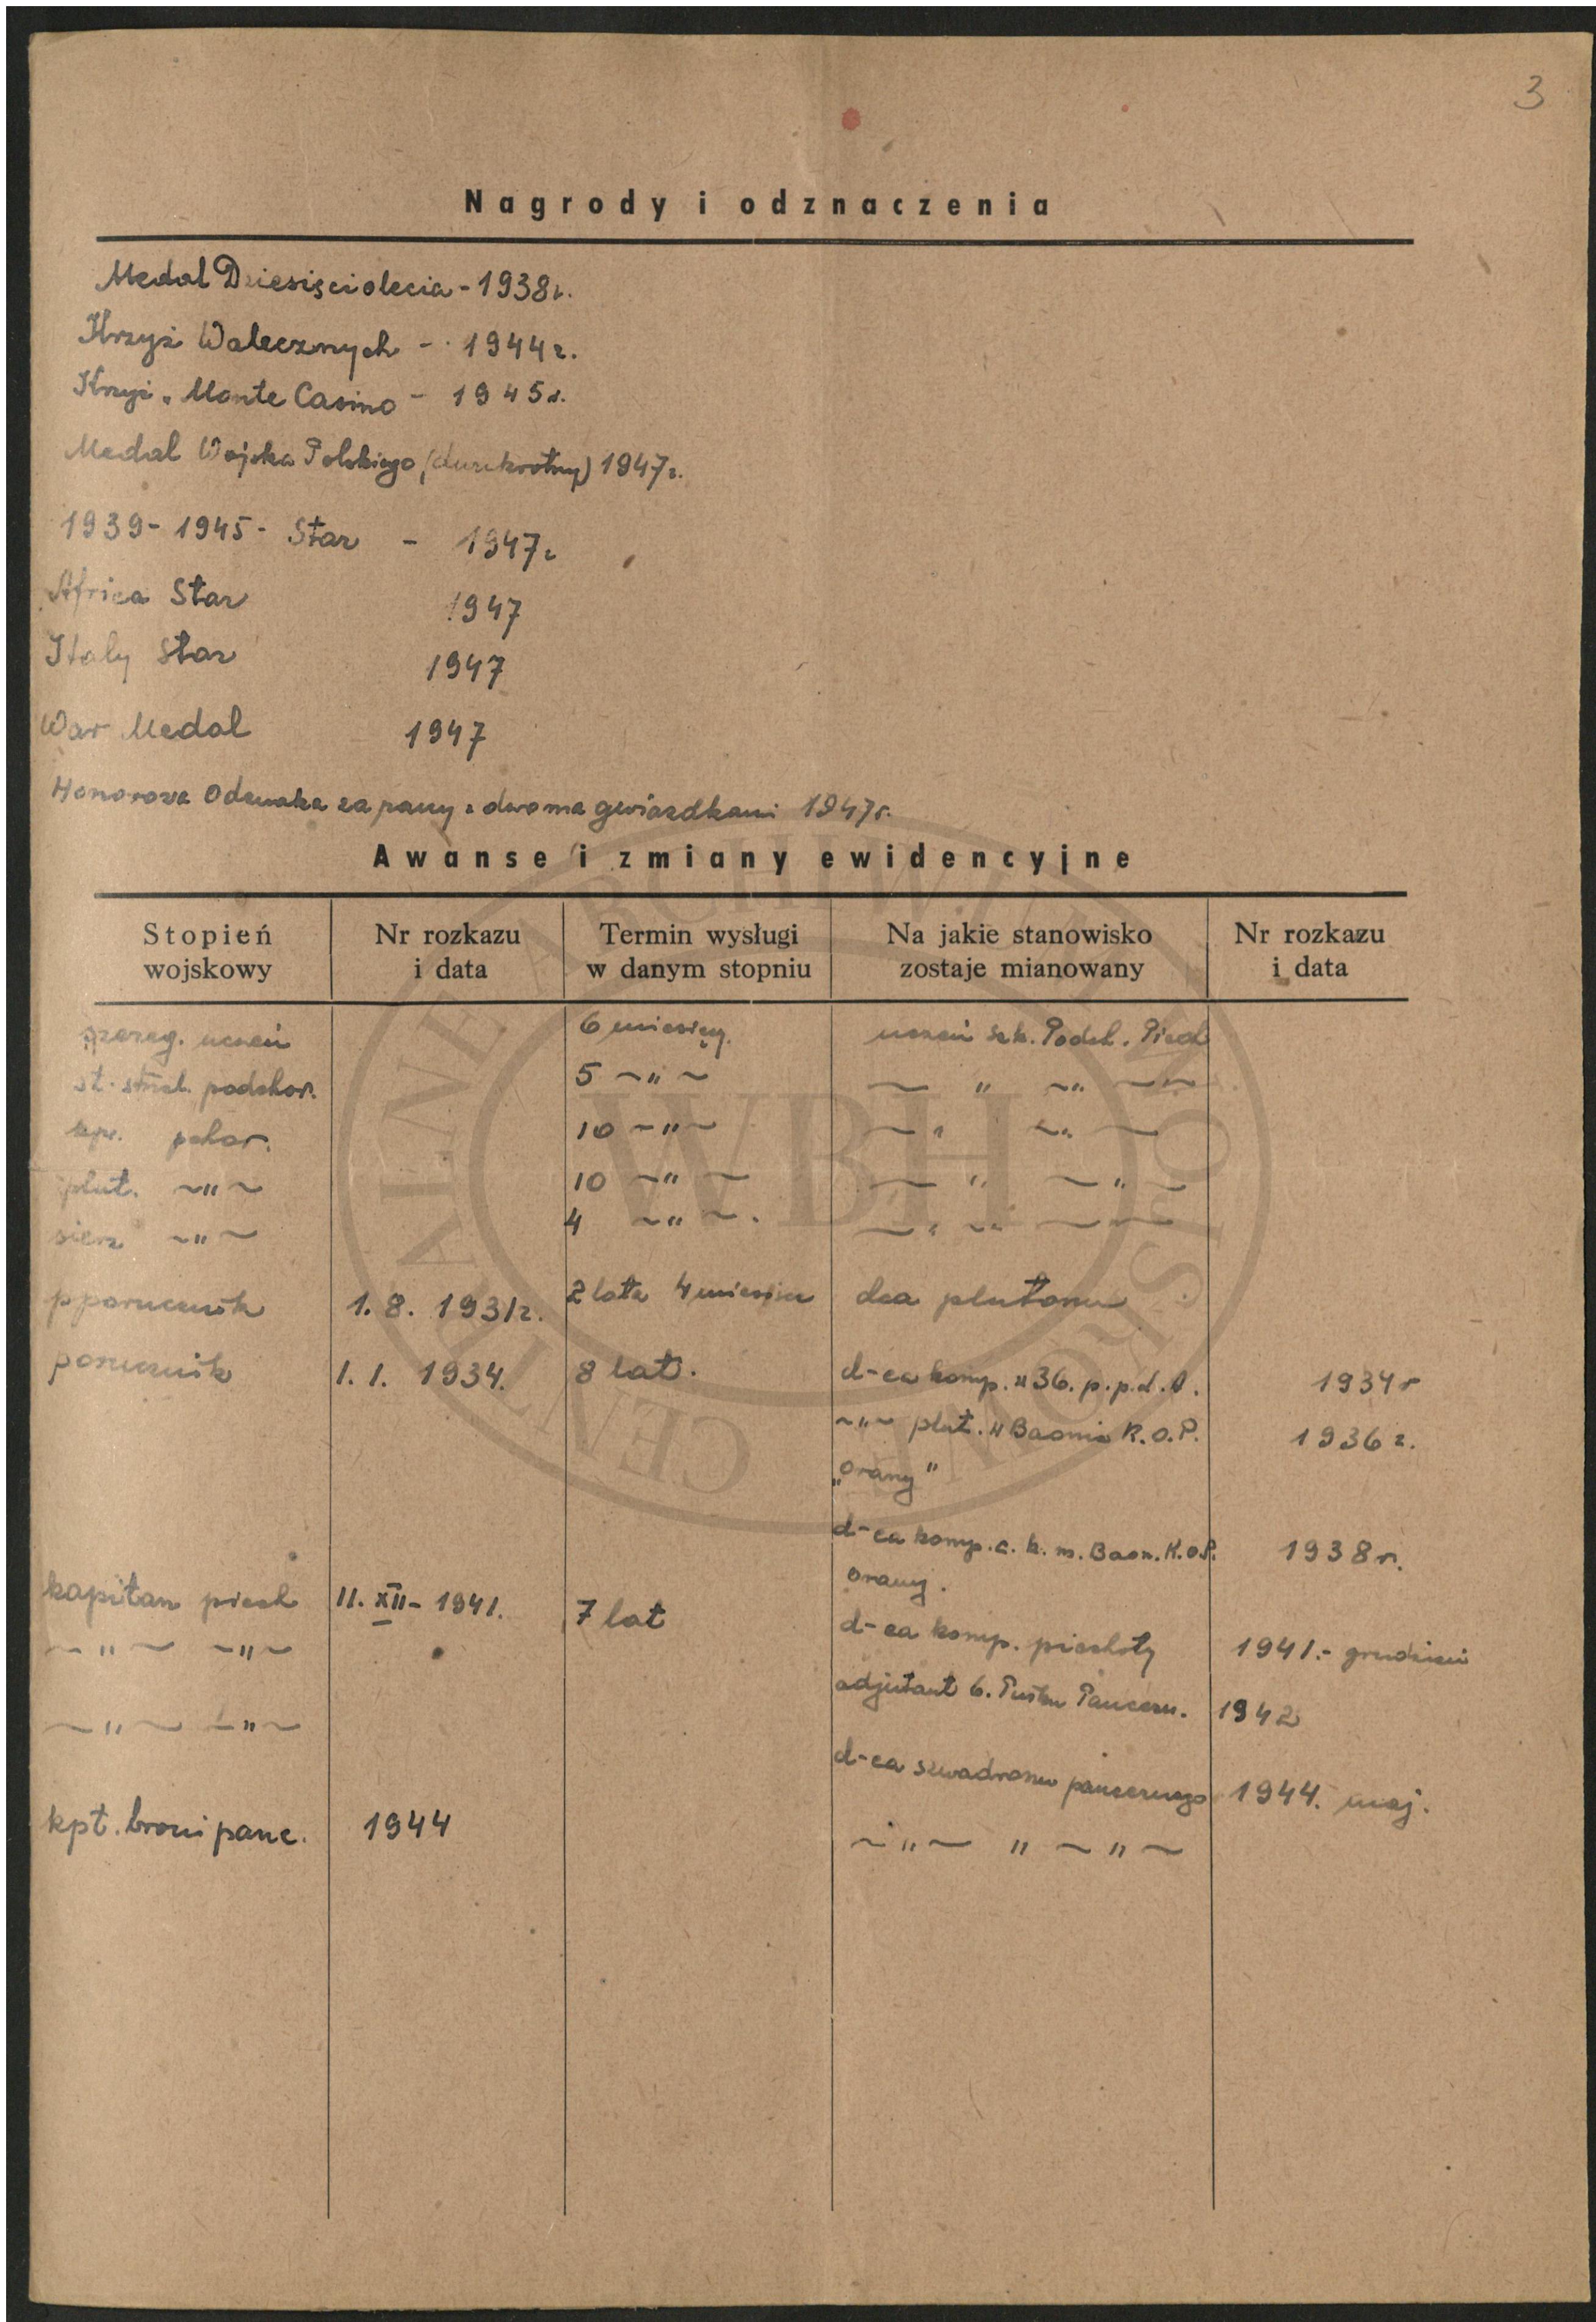 3
Nagrody i odznaczenia
Medal Dziesięciolecia - 1938r.
Krzyż Walecznych - 1944r.
Krzyż „Monte Casino - 1945r.
Medal Wojska Polskiego (dwukrotny) 1947r.
1939-1945- Star - 1947r
Africa Star 1947
Italy Star 1947
War Medal 1947
Honorowa Odznaka za rany z dwoma gwiazdkami 1947r.
Awanse i zmiany ewidencyjne
Stopień wojskowy Nr rozkazu i data Termin wysługi w danym stopniu Na jakie stanowisko zostaje mianowany Nr rozkazu i data
szereg. uczeń 6 miesięcy. uczeń szk. Podch. Piech
st. strzel. podchor. 5 ~"~ ~ " ~" ~~
kpr. pchor. 10 ~"~ ~" ~" ~
plut. ~"~ 10 ~"~ ~ " ~ " ~
sierż ~"~ 4 ~"~. ~ " ~" ~~
pporucznik 1. 8. 1931r. 2 lata 4 miesiące dca plutonu
porucznik 1. 1. 1934. 8 lat. d-ca komp. w 36. p.p.L.A. 1934r
~"~ plut. w Baonie K.O.P. 1936r.
„Orany"
d-ca komp. c. k. m. Baon. K.O.P. 1938r.
Orany.
kapitan piech 11. XII - 1941. 7 lat
d-ca komp. piechoty 1941.- grudzień
~"~ ~"~
adjutant 6. Pułku Pancern. 1942
~"~ ~"~
d-ca szwadronu pancernego 1944. maj.
kpt. broni panc. 1944 ~"~ " ~"~
CENTRALNE ARCHIWUM WOJSKOWE
WBH